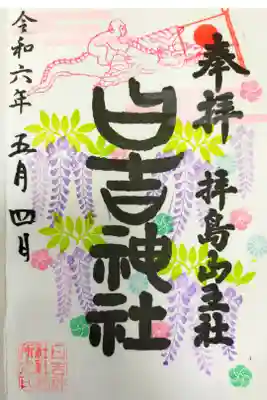 奉拝 拝島山王社
日吉神社
令和六年 五月 四日